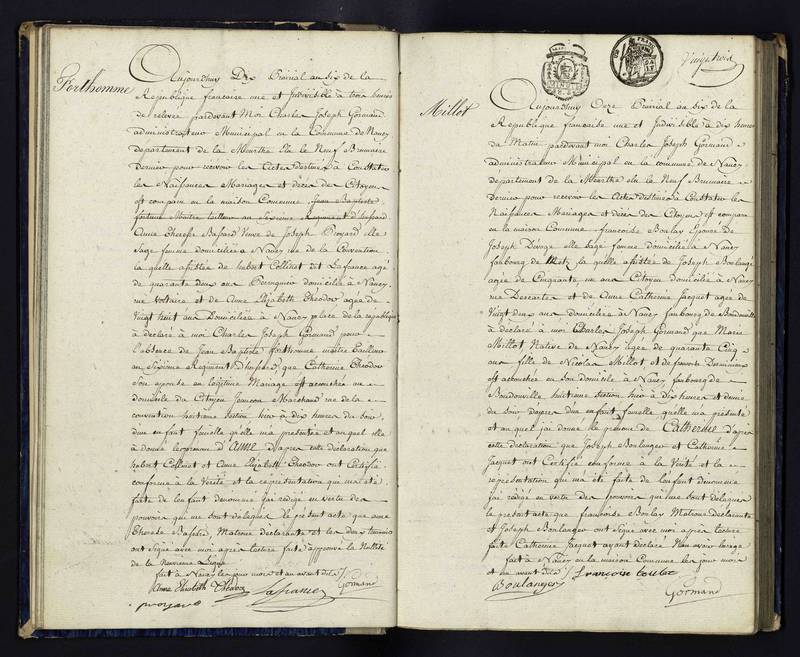 Forthomme
Aujourd'huy Dix Prairial an six de la
Republique francaise une et Indivisible à trois heures
de relevée pardevant Moi Charles Joseph Gormand
administrateur Municipal en la Commune de Nancy
departement de la Meurthe élu le Neuf Brumaire
dernier pour recevoir les Actes destinés à Constater
les Naissances Mariages et décès des Citoyens
est comparu en la maison Commune Jean Baptiste
fortune Maitre tailleur au Sixieme Regiment d'hussard
Anne Therese Bassard Veuve de Joseph Proyard elle
Sage femme domiciliée a Nancy rue de la Convention
la quelle assistée de hubert Collinet dit Lafrance agé
de quarante deux ans Perruquier domicilié à Nancy
rue Voltaire et de Anne Elizabeth Theodow agée de
Vingt huit ans Domiciliée à Nancy place de la republique
à déclaré à moi Charles Joseph Gormand pour
l'absence de Jean Baptiste forthomme maitre tailleur
au Sixieme Regiment D'hussard, que Catherine Theodow
Son epouse en legitime Mariage est accouchée au
domicile du Citoyen Marchand rue de la
convention huitieme Section hier à dix heures du Soir
d'un enfant femelle qu'elle m'a presentée et auquel elle
à donné le prenom d'Anne D'apres cette déclaration que
hubert Collinet et Anne Elizabeth Theodow ont Certifié
conforme à la Verité et la representation qui m'a été
faite de l'enfant denommé j'ai redigé en vertu des
pouvoirs qui me sont delegués le présent acte que anne
Therese Bassard Matrone Declarante et les deux temoins
ont Signé avec moi apres lecture faite approuvé la Nullité
de la Neuvieme Ligne
fait à Nancy les jour mois et an avant dits
Anne Elisabeth Théodow Lafrance Gormand
proyard
Vingt trois
Millot
Aujourd'huy Onze Prairial an six de la
Republique française une et Indivisible à dix heures
du Matin pardevant moi Charles Joseph Gormand
administrateur Municipal en la commune de Nancy
departement de la Meurthe elu le Neuf Brumaire
dernier pour recevoir les Actes destinés à Constater les
Naissances Mariages et décès des Citoyens est comparu
en la maison Commune francoise Boulay Epouse de
Joseph elle Sage femme domiciliée a Nancy
faubourg de Metz la quelle assistée de Joseph Boulanger
agée de Cinquante un ans Citoyen Domicilié à Nancy
rue Descartes et de Anne Catherine Jacquet agée de
Vingt deux ans domiciliée à Nancy faubourg de Boudonville
à declaré à moi Charles Joseph Gormand que Marie
Millot Native de Nancy agée de quarante Cinq
ans fille de Nicolas Millot et de
est accouchée en Son domicile à Nancy faubourg de
Boudonville huitieme Section hier à dix heures et demie
du Soir d'un enfant femelle quelle m'a présenté
et auquel j'ai donné le prenom de Catherine D'apres
cette declaration que Joseph Boulanger et Catherine
Jacquet ont Certifié conforme à la Verité et la
representation qui m'a été faite de l'enfant denommé
j'ai redigé en vertu des pouvoirs qui me sont delegués
le présent acte que françoise Boulay Matrone declarante
et Joseph Boulanger ont Signé avec moi apres lecture
faite Catherine Jacquet ayant declaré n'en avoir l'usage
fait à Nancy en la maison Commune les jour mois
et an avant dits
Boulanger françoise boulay
Gormand